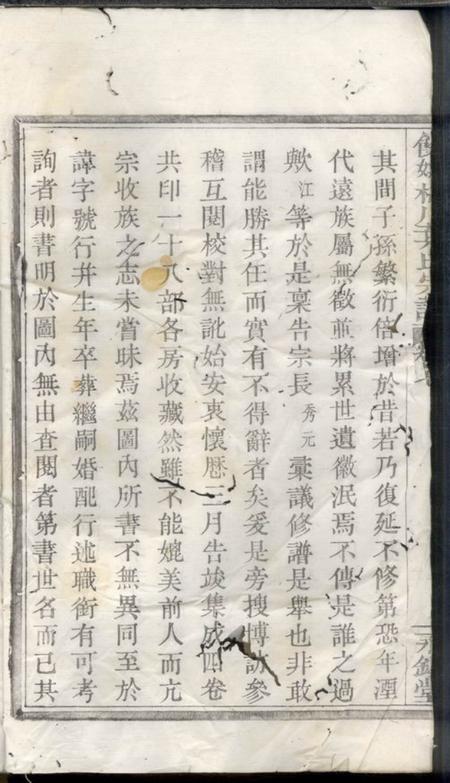 其間子孫繁衍倍增於昔若乃復延不修第恐年湮
代遠族屬無徵並將累世遺徽泯焉不傳是誰之過
歟江等於是稟告宗長秀元彙議修譜是舉也非敢
謂能勝其任而實有不得辭者矣爰是旁搜博訪參
稽互閱校對無訛始安衷懷曆三月告竣集成四卷
共印一十八部各房收藏然雖不能媲美前人而亢
宗收族之志未嘗昧焉茲圖內所書不無異同至於
諱字號行并生年卒葬繼嗣婚配行述職銜有可考
詢者則書明於圖內無由查閱者第書世名而已其